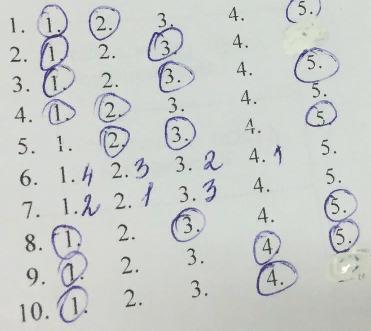 1. 1. 2. 3. 4. 5.
2. 1. 2. 3. 4.
3. 1. 2. 3. 4. 5.
4. 1. 2. 3. 4. 5.
5. 1. 2. 3. 4. 5.
6. 1. 4 2. 3 3. 2 4. 1 5.
7. 1. 2 2. 1 3. 3 4. 5.
8. 1. 2. 3. 4. 5.
9. 1. 2. 3. 4. 5.
10. 1. 2. 3. 4.